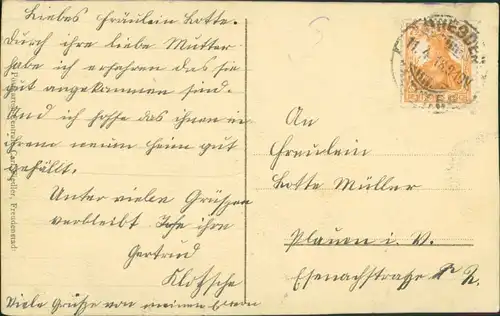 Liebes Fräulein Lotte.
Durch ihre liebe Mutter
habe ich erfahren das sie
gut angekommen sind.
Und ich hoffe das ihnen in
ihrem neuen heim gut
gefällt.
Unter viele Grüßen
verbleibt Ihre
Gertrud
Klotzsche
Viele Grüße von meinen Eltern
DRESDEN
An
Freulein
Lotte Müller
Plauen i. V.
Eisenachstraße
Freudenstadt